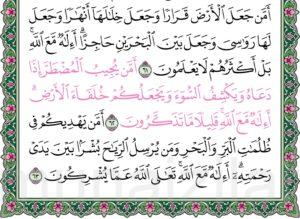 أَمَّن جَعَلَ ٱلْأَرْضَ قَرَارًا وَجَعَلَ خِلَٰلَهَآ أَنْهَٰرًا وَجَعَلَ
لَهَا رَوَٰسِىَ وَجَعَلَ بَيْنَ ٱلْبَحْرَيْنِ حَاجِزًا ۗ أَءِلَٰهٌ مَّعَ ٱللَّهِ ۚ
بَلْ أَكْثَرُهُمْ لَا يَعْلَمُونَ ٦١ أَمَّن يُجِيبُ ٱلْمُضْطَرَّ إِذَا
دَعَاهُ وَيَكْشِفُ ٱلسُّوٓءَ وَيَجْعَلُكُمْ خُلَفَآءَ ٱلْأَرْضِ ۗ
أَءِلَٰهٌ مَّعَ ٱللَّهِ ۚ قَلِيلًا مَّا تَذَكَّرُونَ ٦٢ أَمَّن يَهْدِيكُمْ فِى
ظُلُمَٰتِ ٱلْبَرِّ وَٱلْبَحْرِ وَمَن يُرْسِلُ ٱلرِّيَٰحَ بُشْرًۢا بَيْنَ يَدَىْ
رَحْمَتِهِۦٓ ۗ أَءِلَٰهٌ مَّعَ ٱللَّهِ ۚ تَعَٰلَى ٱللَّهُ عَمَّا يُشْرِكُونَ ٦٣